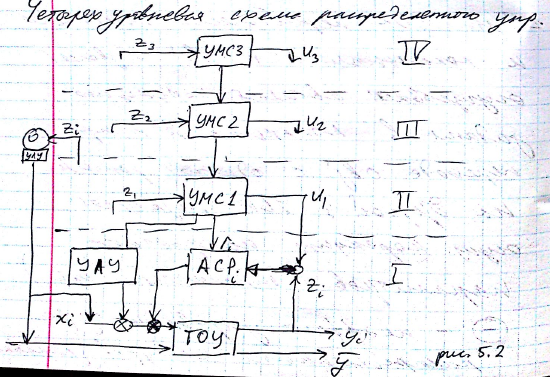 Четырех уровневая схема распределенного упр.
Z₃ УМС3 U₃ IV
Z₂ УМС2 U₂ III
О Zi
УЛУ
Z₁ УМС1 U₁ II
УЛУ ri АСРi Zi I
xi ТОУ yi
y̅
рис 5.2